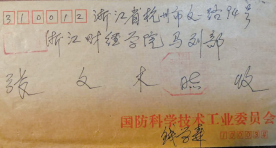 310012 浙江省杭州市文一路94号
浙江财经学院马列部
张文木 收
国防科学技术工业委员会
钱学森